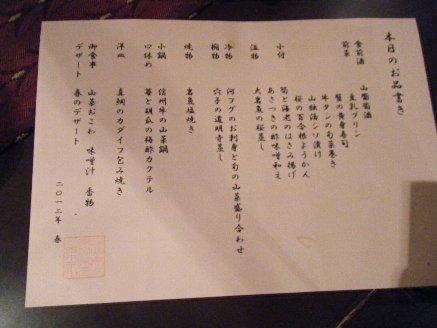 本日のお品書き
食前酒　山葡萄酒
前菜　豆乳プリン
蟹の黄身寿司
牛タンの旬菜巻き
山独活シソ漬け
桜の百合根ようかん
筍と海老のはさみ揚げ
小付　あさつきの酢味噌和え
温物　大岩魚の桜蒸し
冷物　河フグのお刺身と旬の山菜盛り合わせ
椀物　穴子の道明寺蒸し
焼物　岩魚塩焼き
小鍋　信州牛の山菜鍋
口休め　苺と胡瓜の梅酢カクテル
洋皿　真鯛のカダイフ包み焼き
御食事　山菜おこわ　味噌汁　香物
デザート　春のデザート
二〇一二年　春